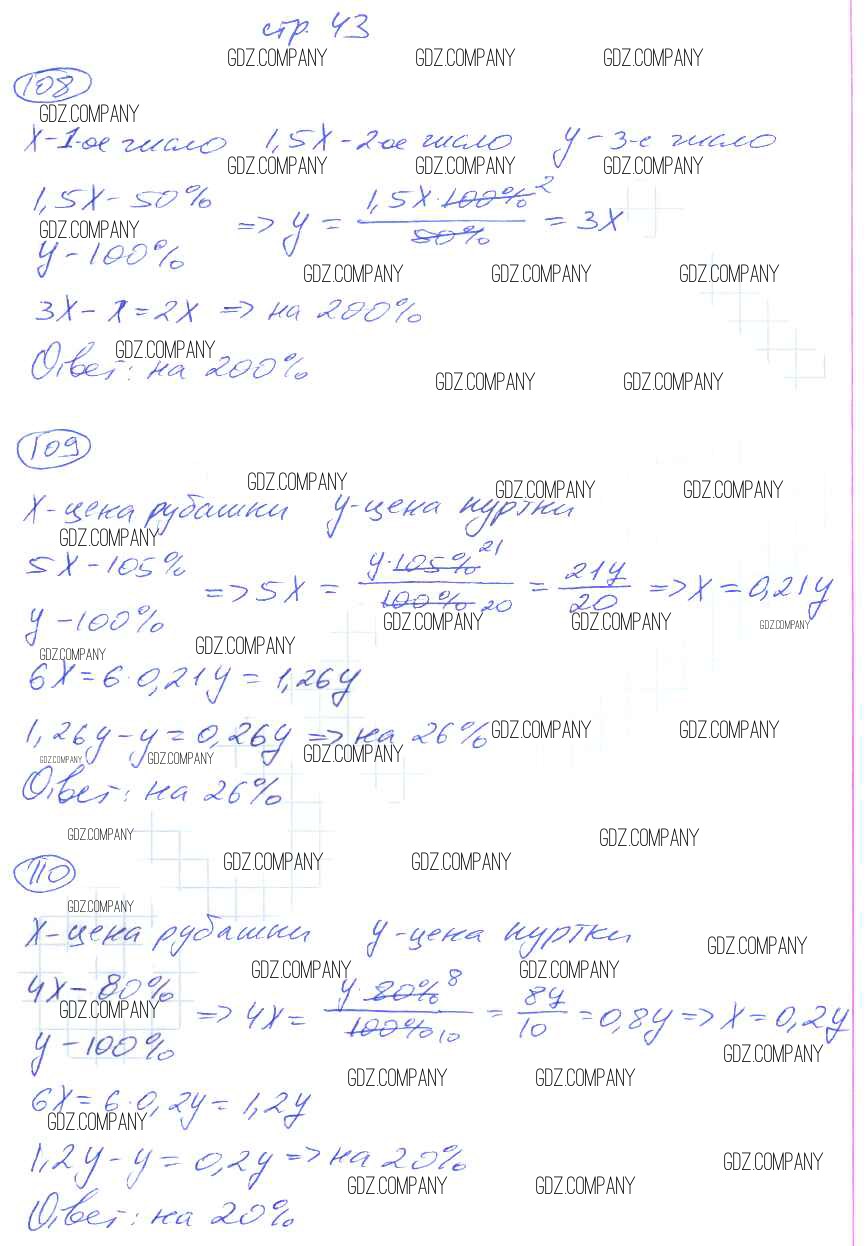 стр. 43
GDZ.COMPANY GDZ.COMPANY GDZ.COMPANY
108
GDZ.COMPANY
X-1-ое число 1,5X-2-ое число y-3-е число
GDZ.COMPANY GDZ.COMPANY GDZ.COMPANY
1,5X-50%
GDZ.COMPANY
y-100%
=> y = 1,5X·100% 2 / 50% = 3X
GDZ.COMPANY GDZ.COMPANY GDZ.COMPANY
3X-X=2X => на 200%
GDZ.COMPANY
Ответ: на 200%
GDZ.COMPANY GDZ.COMPANY
109
GDZ.COMPANY GDZ.COMPANY GDZ.COMPANY
X-цена рубашки y-цена куртки
GDZ.COMPANY
5X-105%
y-100%
=> 5X = y·105% 21 / 100% 20 = 21y / 20 => X=0,21y
GDZ.COMPANY GDZ.COMPANY GDZ.COMPANY
GDZ.COMPANY GDZ.COMPANY
6X=6·0,21y=1,26y
1,26y-y=0,26y => на 26%
GDZ.COMPANY GDZ.COMPANY
GDZ.COMPANY GDZ.COMPANY GDZ.COMPANY
Ответ: на 26%
GDZ.COMPANY GDZ.COMPANY
GDZ.COMPANY GDZ.COMPANY
110
GDZ.COMPANY
X-цена рубашки y-цена куртки
GDZ.COMPANY
GDZ.COMPANY GDZ.COMPANY
4X-80%
GDZ.COMPANY
y-100%
=> 4X = y·80% 8 / 100% 10 = 8y / 10 = 0,8y => X=0,2y
GDZ.COMPANY
GDZ.COMPANY GDZ.COMPANY
6X=6·0,2y=1,2y
GDZ.COMPANY
1,2y-y=0,2y => на 20%
GDZ.COMPANY
GDZ.COMPANY GDZ.COMPANY
Ответ: на 20%